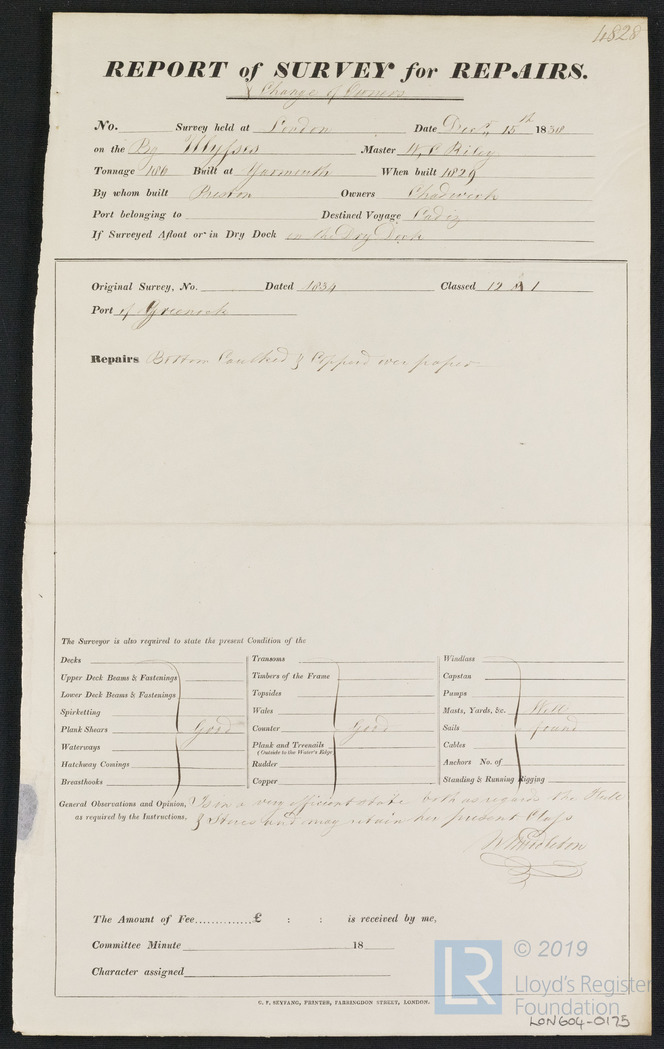 4828
REPORT of SURVEY for REPAIRS.
& Change of Owners
No. Survey held at London Date Decr. 15th 1838
on the Bg Ulysses Master W. P. Riley
Tonnage 186 Built at Yarmouth When built 1829
By whom built Preston Owners Chadwick
Port belonging to Destined Voyage Cadiz
If Surveyed Afloat or in Dry Dock in the Dry Dock
Original Survey, No. Dated 1834 Classed 12 A 1
Port of Greenock
Repairs Bottom Caulked & Coppered over paper
The Surveyor is also required to state the present Condition of the
Decks
Upper Deck Beams & Fastenings
Lower Deck Beams & Fastenings
Spirketting
Plank Shears Good
Waterways
Hatchway Comings
Breasthooks
Transoms
Timbers of the Frame
Topsides
Wales
Counter Good
Plank and Treenails
(Outside to the Water's Edge)
Rudder
Copper
Windlass
Capstan
Pumps
Masts, Yards, &c. Well
Sails found
Cables
Anchors No. of
Standing & Running Rigging
General Observations and Opinion, Is in a very efficient state both as regards the Hull
as required by the Instructions, & Stores and may retain her present Class
The Amount of Fee..............£ : : is received by me,
Committee Minute 18
Character assigned
C. F. SEYFANG, PRINTER, FARRINGDON STREET, LONDON.
LR
© 2019
Lloyd's Register
Foundation
LON604-0175